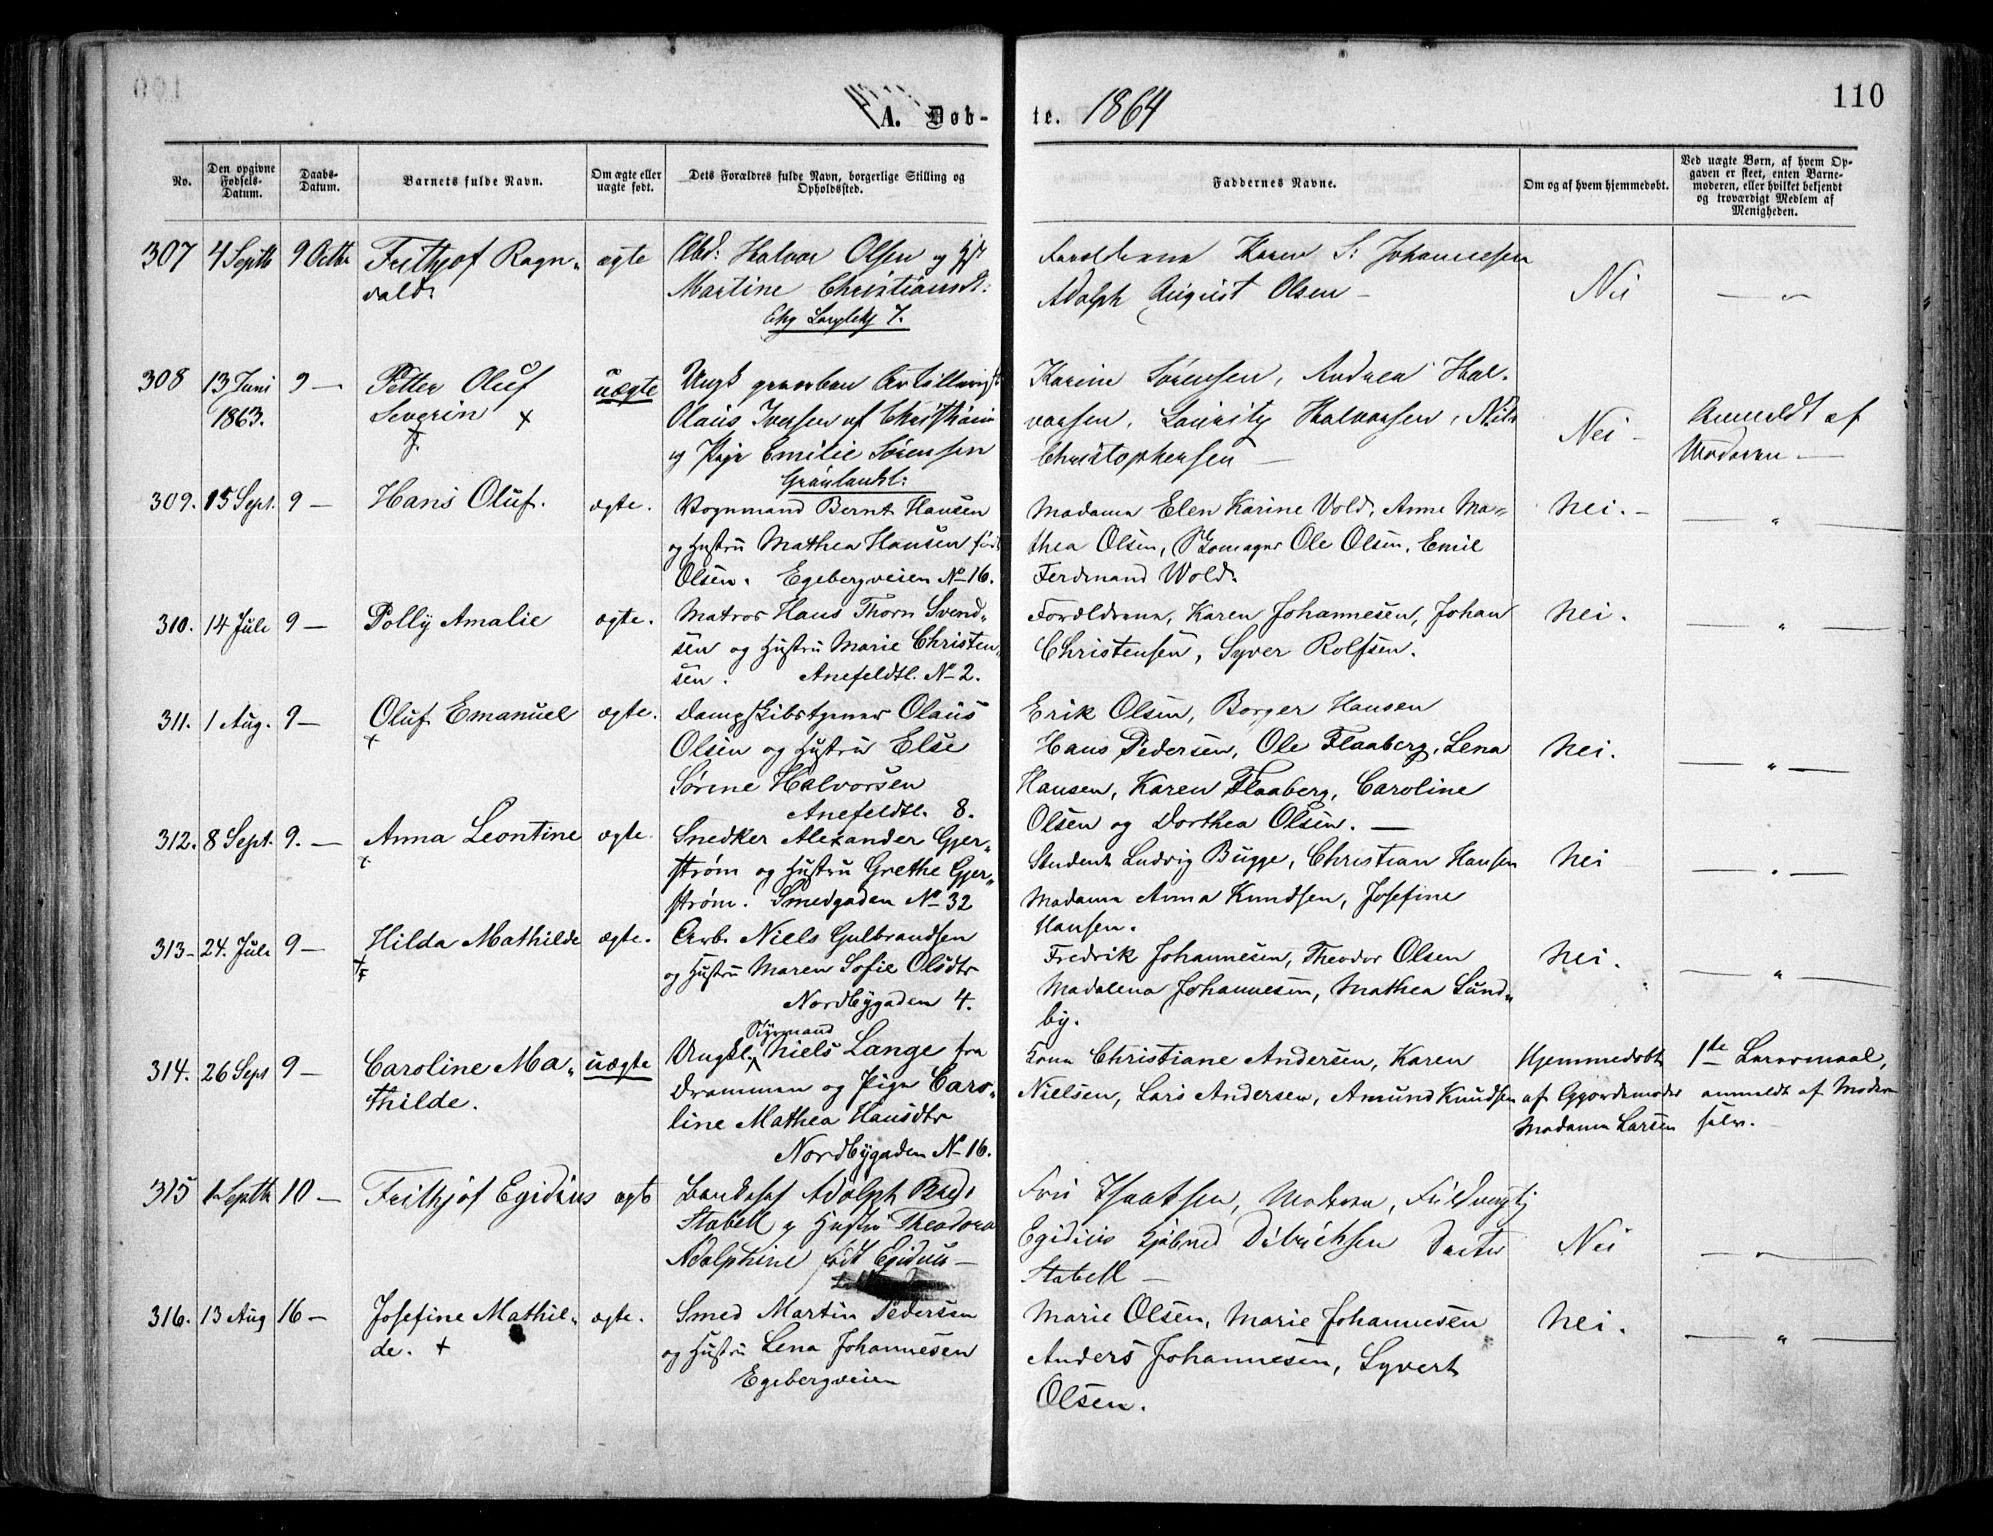 110
A. Døb-
te. 1864
No.
Den opgivne
Fødsels-
Datum.
Daabs-
Datum.
Barnets fulde Navn.
Om ægte eller
uægte født.
Dets Forældres fulde Navn, borgerlige Stilling og
Opholdssted.
Faddernes Navne.
Om og af hvem hjemmedøbt.
Ved uægte Børn, af hvem Op-
gaven er skeet, enten Barne-
moderen, eller hvilket bekjendt
og troværdigt Medlem af
Menigheden.
307 4 Septb 9 Octbr Frithjof Ragn-
vald
ægte
Halvor Olsen og
Martine
7.
Forældrene Karen S: Johannesen
Adolph August Olsen –
Nei
— " —
308 13 Juni 9 —
1863.
Petter Oluf
Severin ×
uægte
Olaus Iversen af Christiania
og Pige Emilie Sørensen
Grønlandsl:
Karine Sørensen, Andrea Hal-
vorsen, Lauritz Halvorsen, Nils
Christophersen —
Nei –
Anmeldt af
Moderen. —
309. 15 Sept. 9 — Hans Oluf. ægte.
Vognmand Bernt Hansen
og Hustru Mathea Hansen
Olsen. Egebergveien No 16.
Madame Elen Karine Vold, Anne Ma-
thea Olsen, Skomager Ole Olsen, Emil
Ferdinand Wold.
Nei. –
— " —
310. 14 Juli 9 — Polly Amalie ægte.
Matros Hans Thorn Svend-
sen og Hustru Marie Christen-
sen. Anefeldtl. No 2.
Forældrene, Karen Johannesen, Johan
Christensen, Syver Rolfsen.
Nei.
— " —
311. 1 Aug. 9 — Oluf Emanuel ægte.
×
Olaus
Olsen og Hustru Else
Sørine Halvorsen
Anefeldtl. 8.
Erik Olsen, Borger Hansen
Hans Pedersen, Ole Flaaberg, Lena
Hansen, Karen Flaaberg, Caroline
Olsen og Dorthea Olsen. —
Nei.
— " —
312. 8 Sept. 9. — Anna Leontine ægte.
×
Snedker Alexander Gjer-
strøm og Hustru Grethe Gjer-
strøm. Smedgaden No 32
Student Ludvig Bugge, Christian Hansen
Madame Anna Knudsen, Josefine
Hansen.
Nei
— " —
313 – 24. Juli 9 — Hilda Mathilde ægte.
Arb. Niels Gulbrandsen
og Hustru Maren Sofie Olsdtr
Nordbygaden 4.
Fredrik Johannesen, Theodor Olsen
Madalena Johannesen, Mathea Sund-
by.
Nei.
— " —
314. 26 Sept 9 — Caroline Ma-
thilde.
uægte
Styrmand
Ungkl. Niels Lange fra
Drammen og Pige Caro-
line Mathea Hansdtr
Nordbygaden No 16.
Kone Christiane Andersen, Karen
Nielsen, Lars Andersen, Amund Knudsen
Hjemmedøbt
af Gjordemoder
Madame Larsen
1ste Leiermaal,
anmeldt af Moderen
selv.
315 1 Septb 10 — Frithjof Egidius ægte
Adolph
Stabell og Hustru Theodora
Adolphine født Egidius –
Egidius Ditrichsen
Stabell –
Nei
— " —
316. 13 Aug 16 – Josefine Mathil-
de. ×
ægte.
Smed Martin Pedersen
og Hustru Lena Johannesen
Egebergveien
Marie Olsen, Marie Johannesen
Anders Johannesen, Syvert
Olsen.
Nei.
— " —